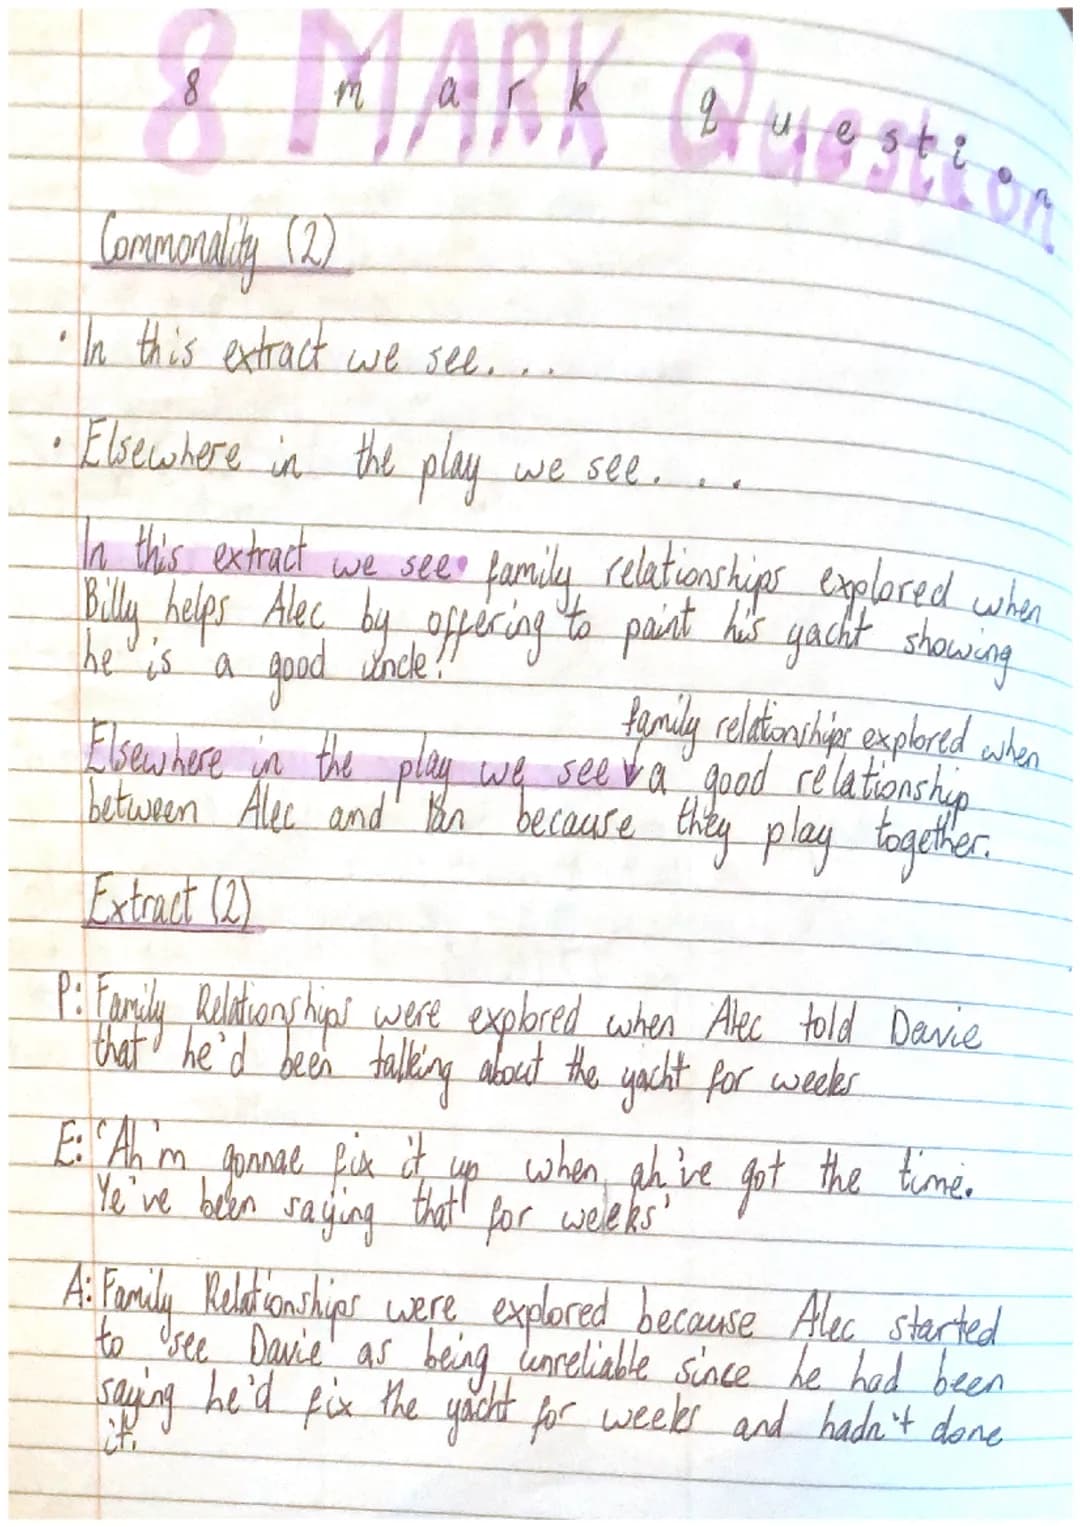 8 MARK Question
8 mark question
Commonality (2)
· In this extract we see...
· Elsewhere in the play we see...
In this extract we see family relationships explored when
Billy helps Alec by offering to paint his yacht showing
he is a good uncle!!
family relationships explored when
Elsewhere in the play we see a good relationship
between Alec and Ian because they play together.
Extract (2)
P: Family Relationships were explored when Alec told Davie
that he'd been talking about the yacht for weeks
E: 'Ah'm gonnae fix it up when ah've got the time.
Ye've been saying that for weeks'
A: Family Relationships were explored because Alec started
to see Davie as being unreliable since he had been
saying he'd fix the yacht for weeks and hadn't done
it.